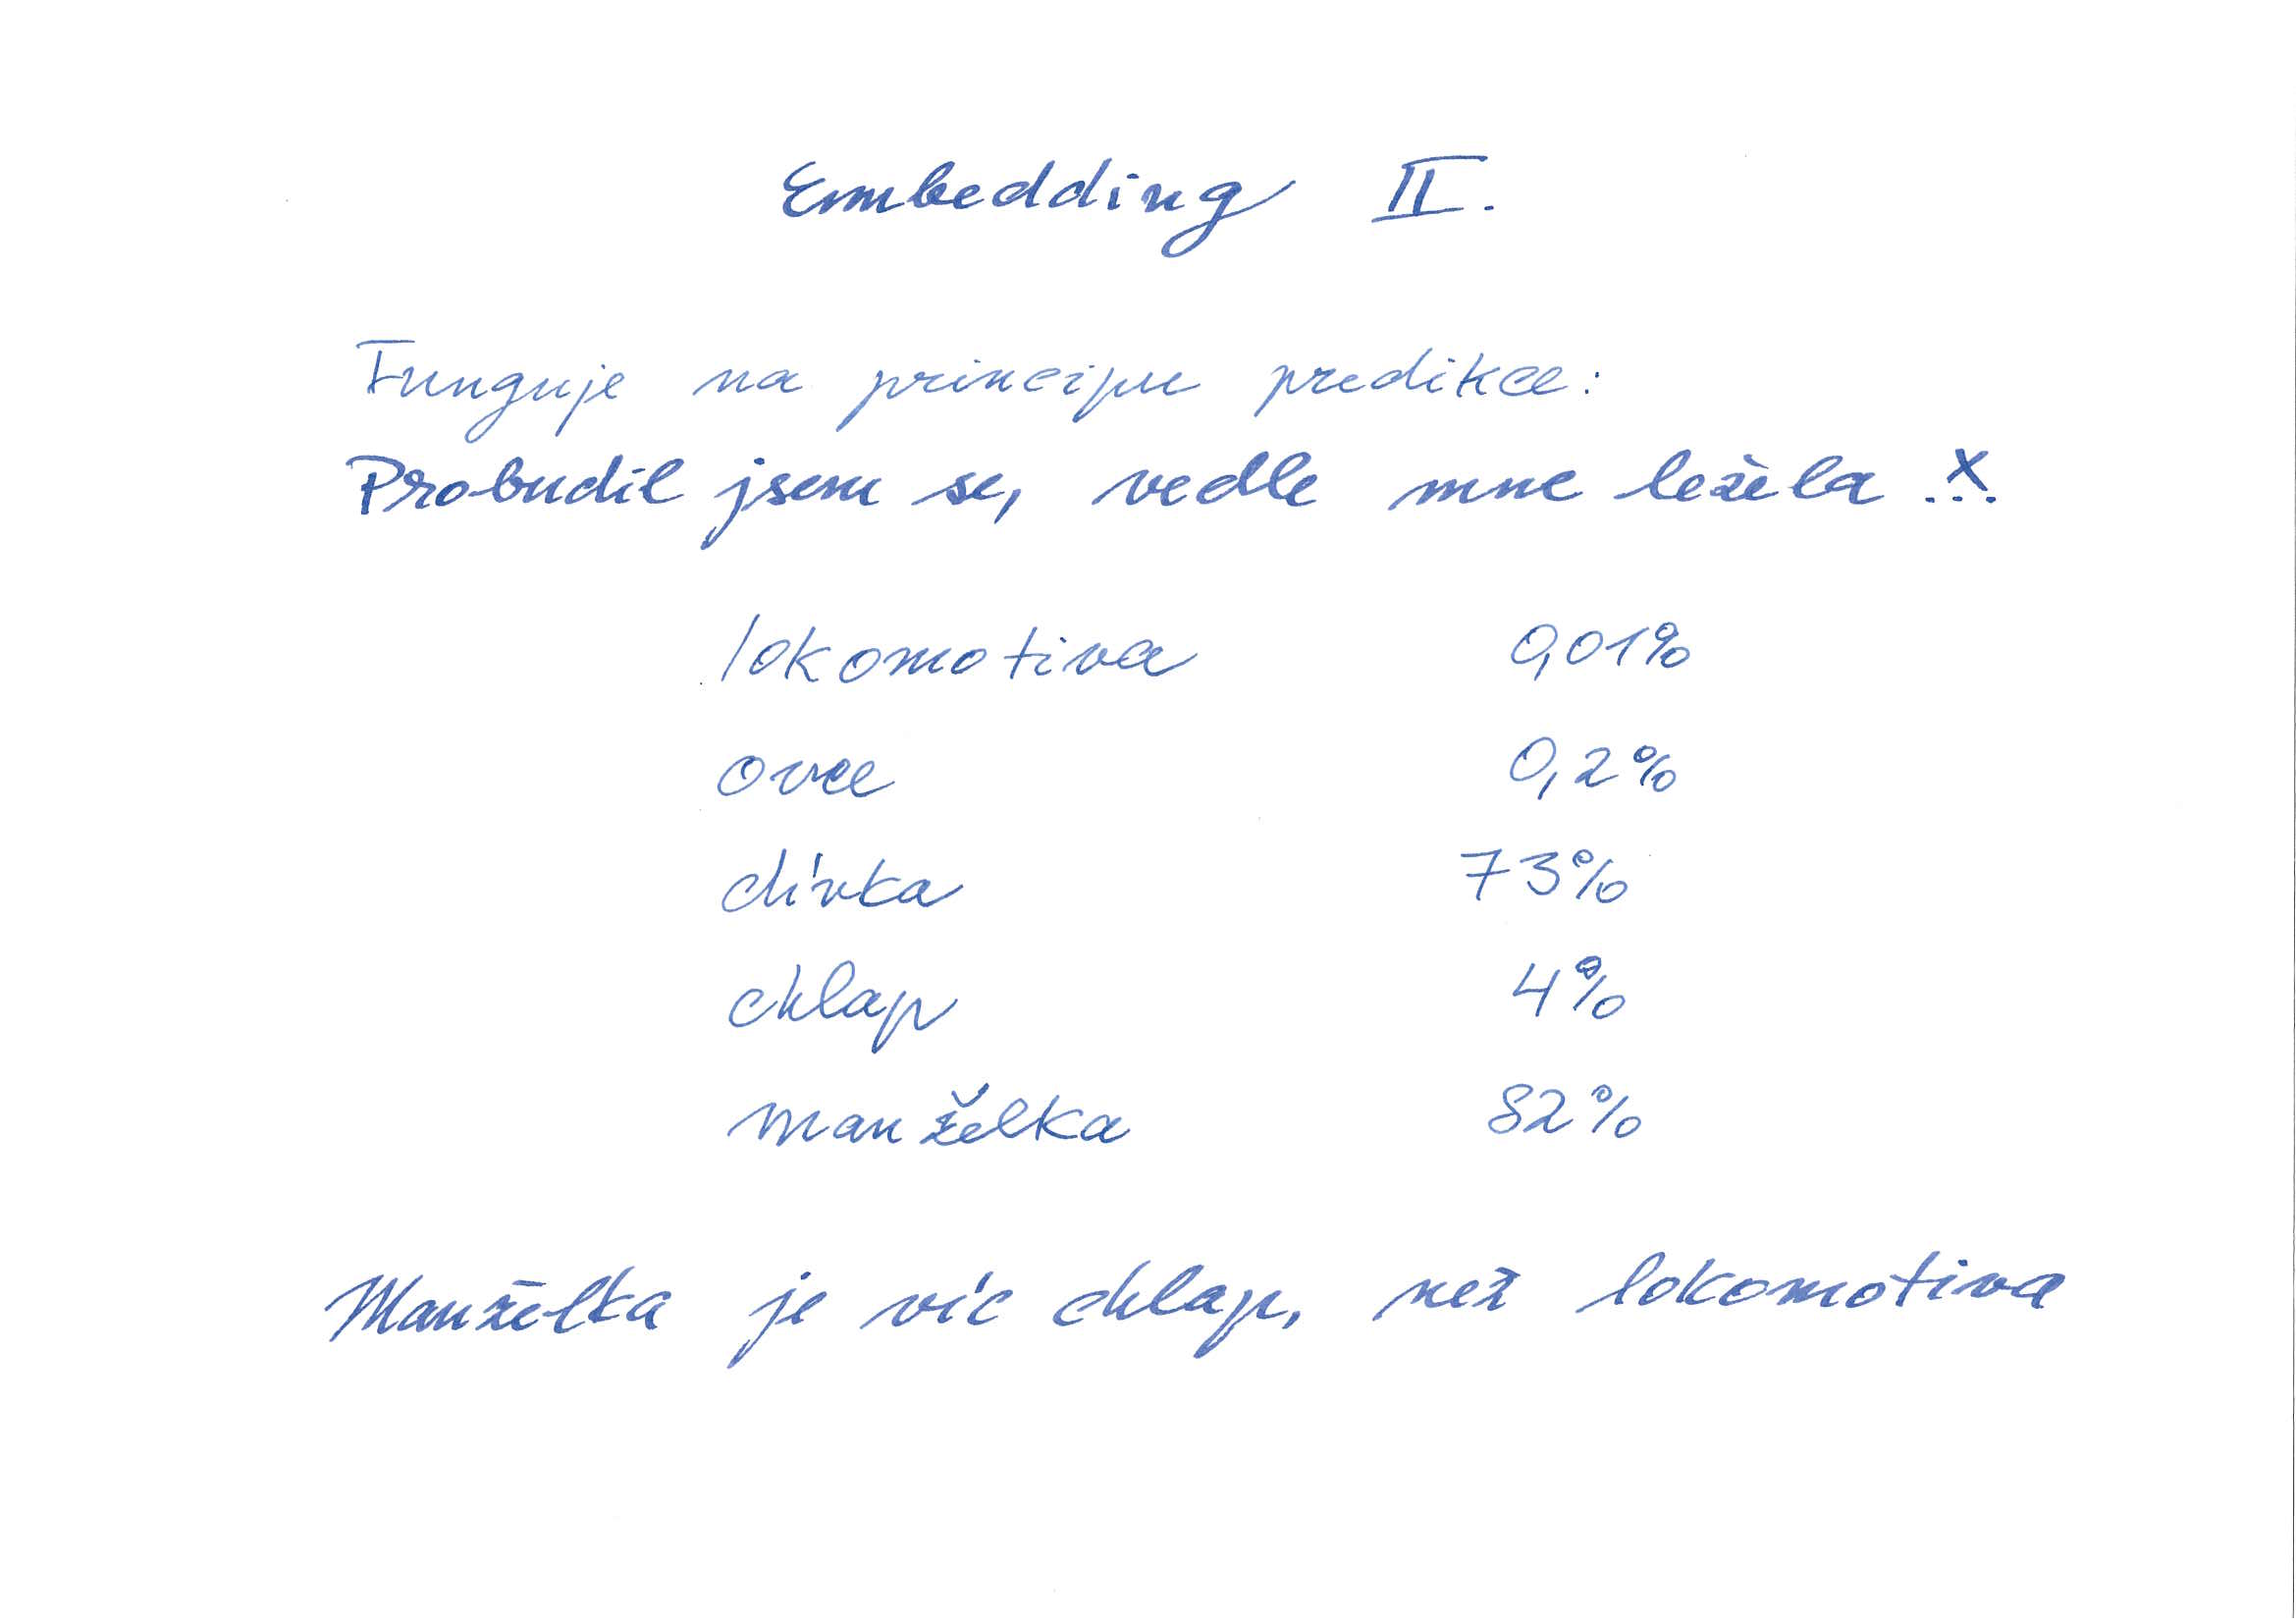 Embedding II.
Funguje na principu predikce:
Probudil jsem se, vedle mne ležela .X.
lokomotiva 0,01%
ovce 0,2%
dívka 73%
chlap 4%
manželka 82%
Manželka je víc chlap, než lokomotiva